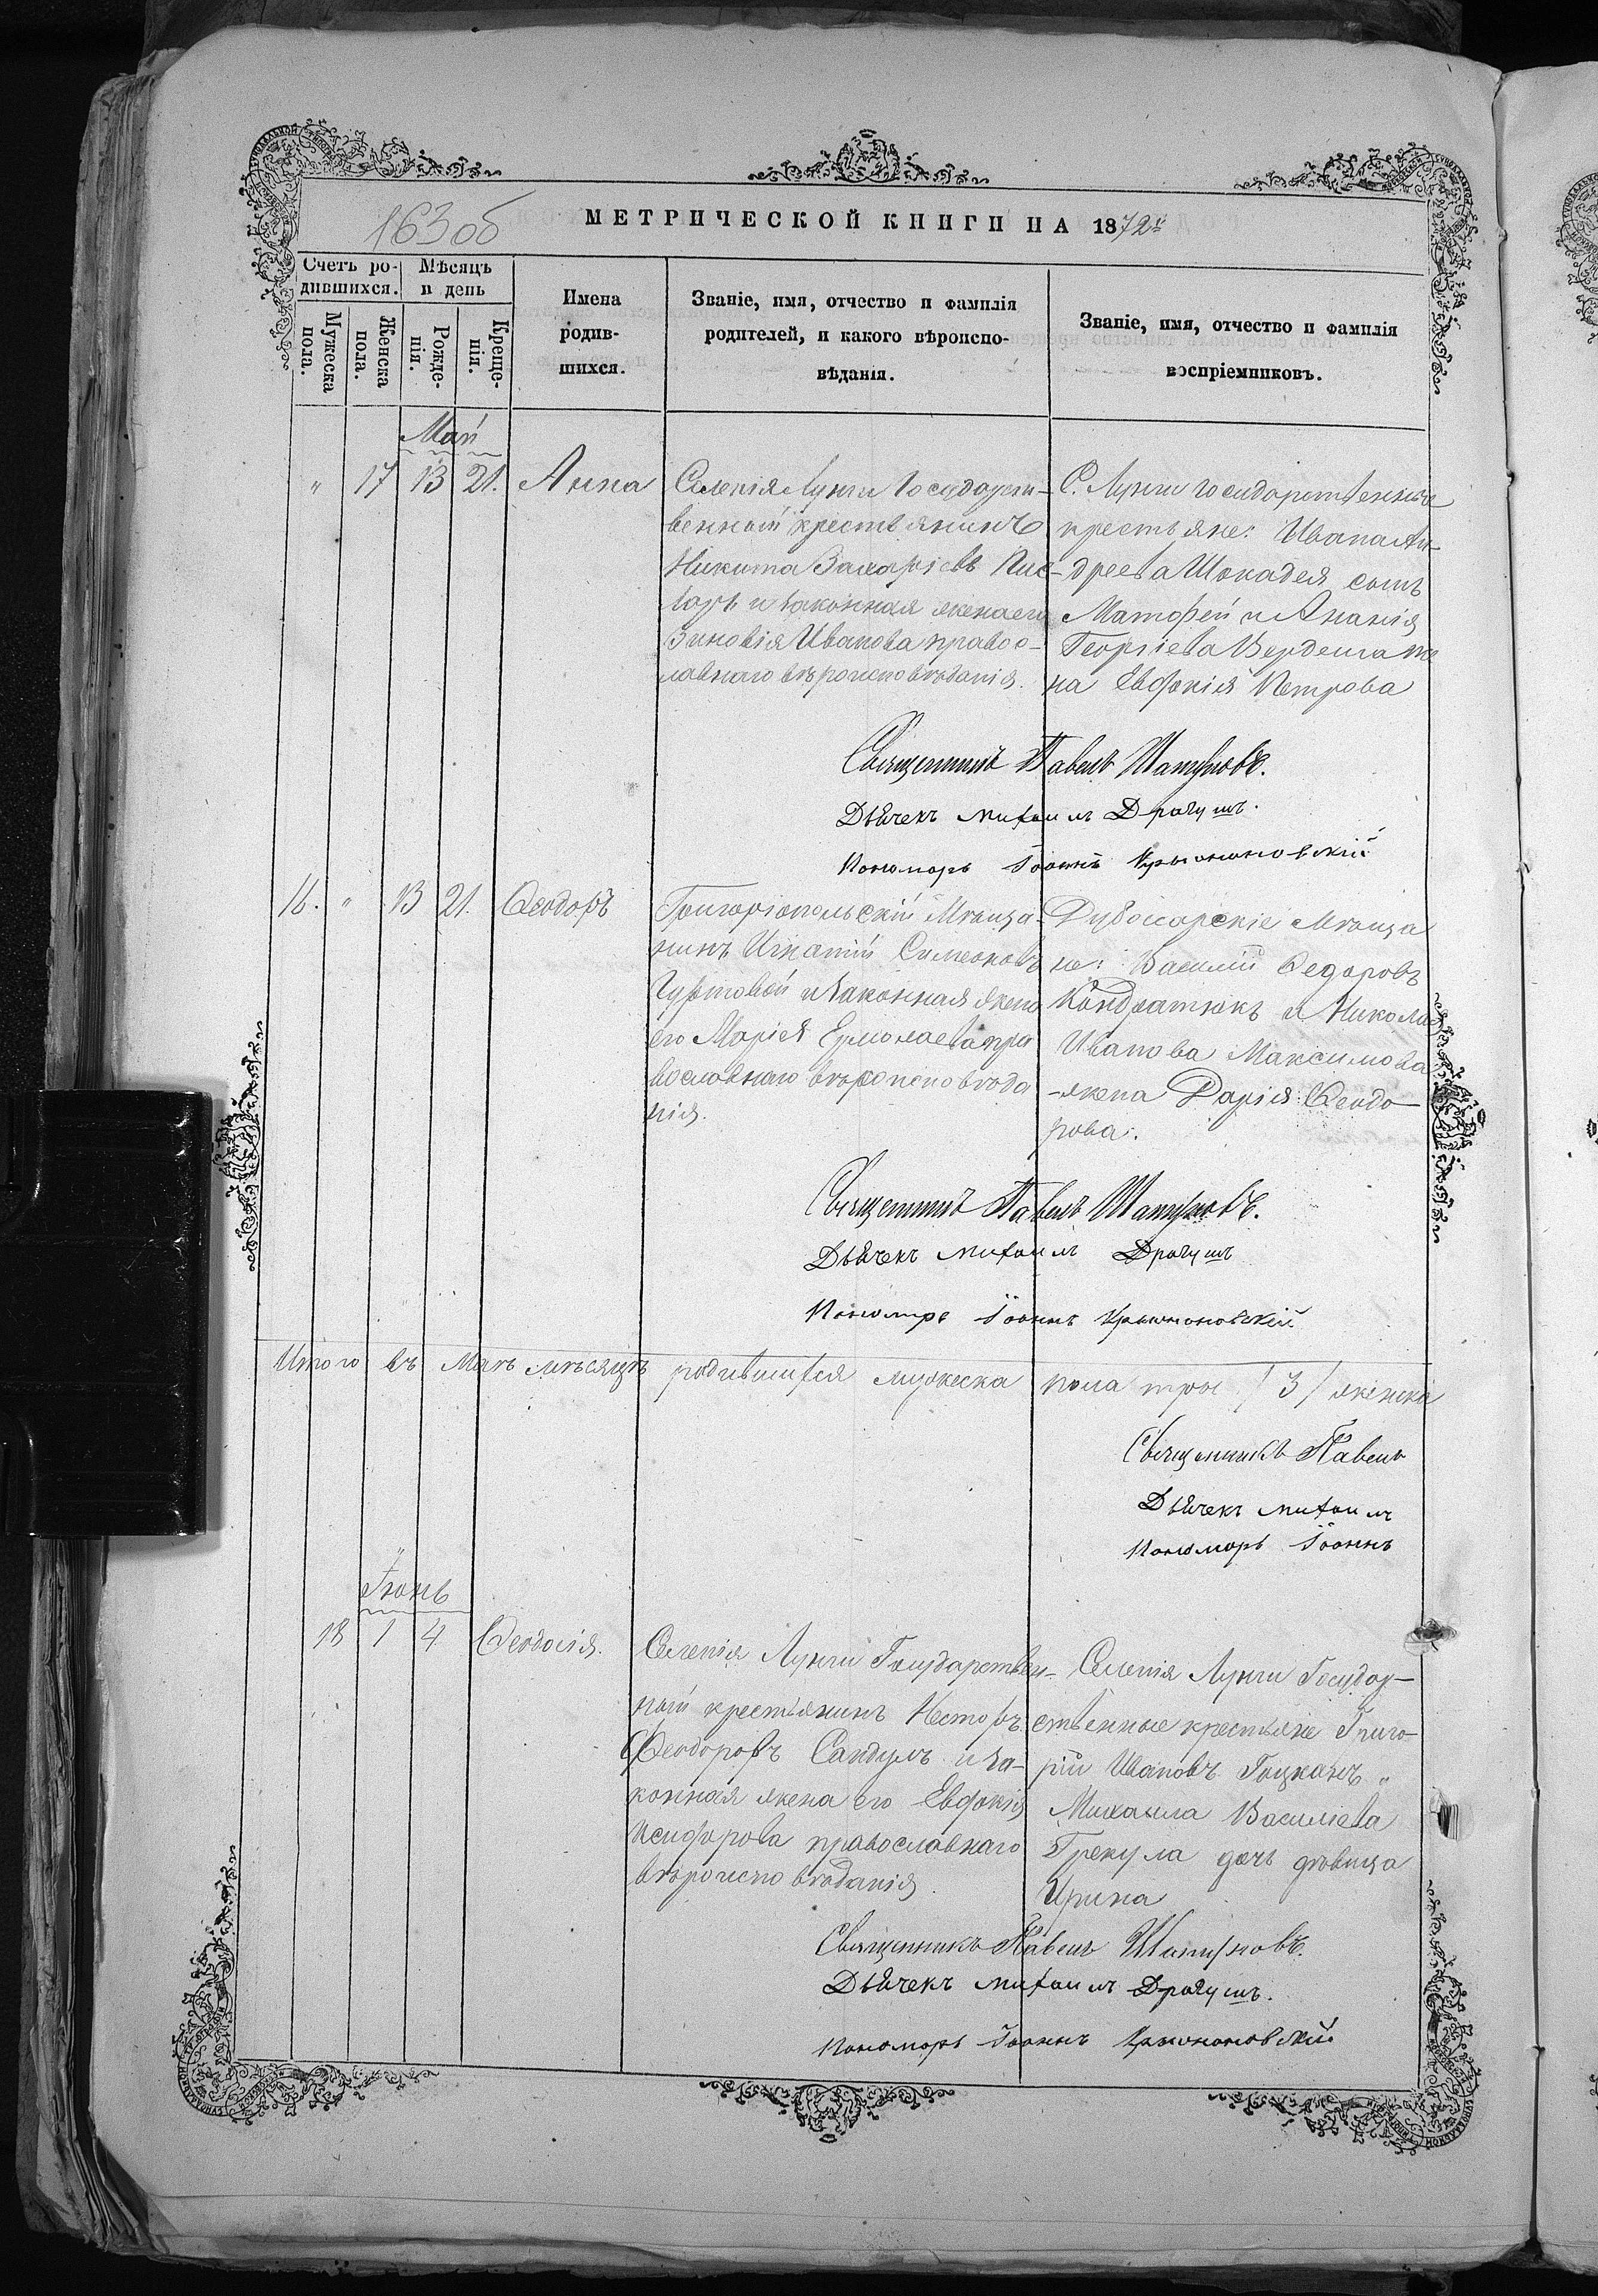 163 об
МЕТРИЧЕСКОЙ КНИГИ НА 1872й
Счетъ ро-
дившихся.
Мѣсяцъ
и день
Мужеска
пола.
Женска
пола.
Рожде-
нія.
Креще-
нія.
Имена
родив-
шихся.
Званіе, имя, отчество и фамилія
родителей, и какого вѣроиспо-
вѣданія.
Званіе, имя, отчество и фамилія
воспріемниковъ.
Май
" 17 13 21. Анна
Селенія Лунги Государст-
венный крестьянинъ
Никита Захаріевъ
и законная жена его
Зиновія Иванова правос-
лавнаго вѣроисповѣданія.
С. Лунги государственные
крестьяне: Ивана Ан-
дреева Шокадея сынъ
Матфей и Ананія
Георгіева Вердеша же
на Евфокія Петрова
Священникъ Павелъ
Дьячекъ михаилъ Драгушъ.
Пономарь Іоаннъ
16. " 13 21. Ѳеодоръ
Григоріопольскій Мѣща-
нинъ Игнатій Симеоновъ
Гуртовой и законная жена
его Марія Ермолаева пра
вославнаго вѣроисповѣда
нія.
Дубоссарскіе Мѣща
не: Василій Ѳедоровъ
Кондратюкъ и Никола
Иванова Максимова
-жена Дарія Ѳеодо-
рова.
Священникъ Павелъ
Дьячекъ михаилъ Драгушъ
Пономарь Іоаннъ
Итого въ Маѣ мѣсяцѣ родившихся мужеска пола три /3/ женска
Священникъ Павелъ
Дьячекъ михаилъ
Пономарь Іоаннъ
Іюнь
18 1 4 Ѳеодосія.
Селенія Лунги Государствен-
ный крестьянинъ Несторъ
Ѳеодоровъ Сандулъ и за-
конная жена его Евфокія
Исидорова православнаго
вѣроисповѣданія.
Селенія Лунги Государ-
ственные крестьяне Григо-
рій Ивановъ Гоцканъ "
Михаила Василіева
Грекула дочь дѣвица
Ирина
Священникъ Павелъ
Дьячекъ михаилъ Драгушъ.
Пономарь Іоаннъ